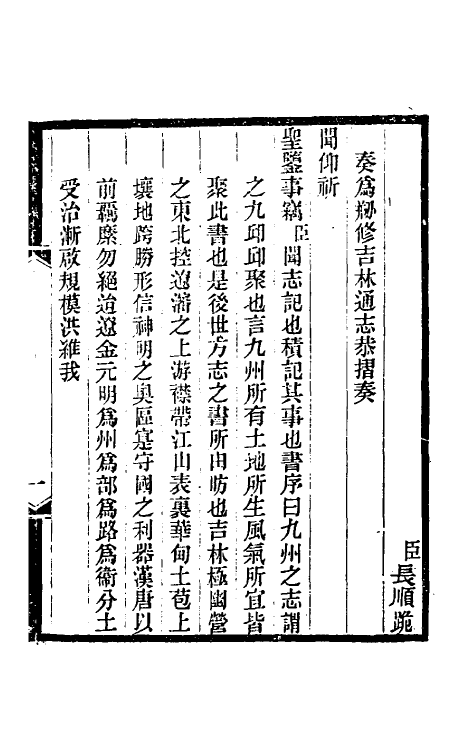 臣長順跪
奏為剏修吉林通志恭摺奏
聞仰祈
聖鑒事竊臣聞志記也積記其事也書序曰九州之志謂
之九邱邱聚也言九州所有土地所生風氣所宜皆
聚此書也是後世方志之書所由昉也吉林極幽營
之東北控遼瀋之上游襟帶江山表裏華甸土苞上
壤地跨勝形信神明之奧區寔守國之利器漢唐以
前羈縻勿絕迨遼金元明為州為部為路為衞分土
受治漸啟規模洪維我